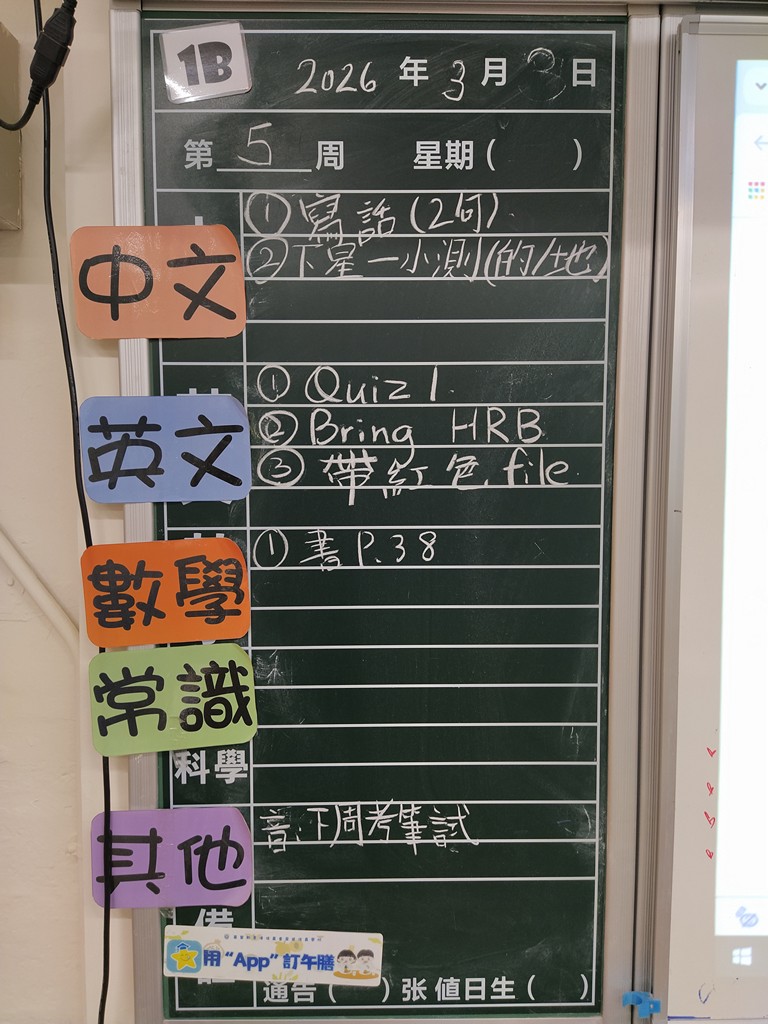 1B
2026 年 3 月 3 日
第 5 周 星期( )
中文
① 寫話(2句).
② 下星一小測(的/地)
英文
① Quiz 1.
② Bring HRB
③ 帶紅色 file.
數學
① 書 P.38
常識
科學
其他
音:下周考筆試
備
用“App”訂午膳
通告( )张 值日生( )